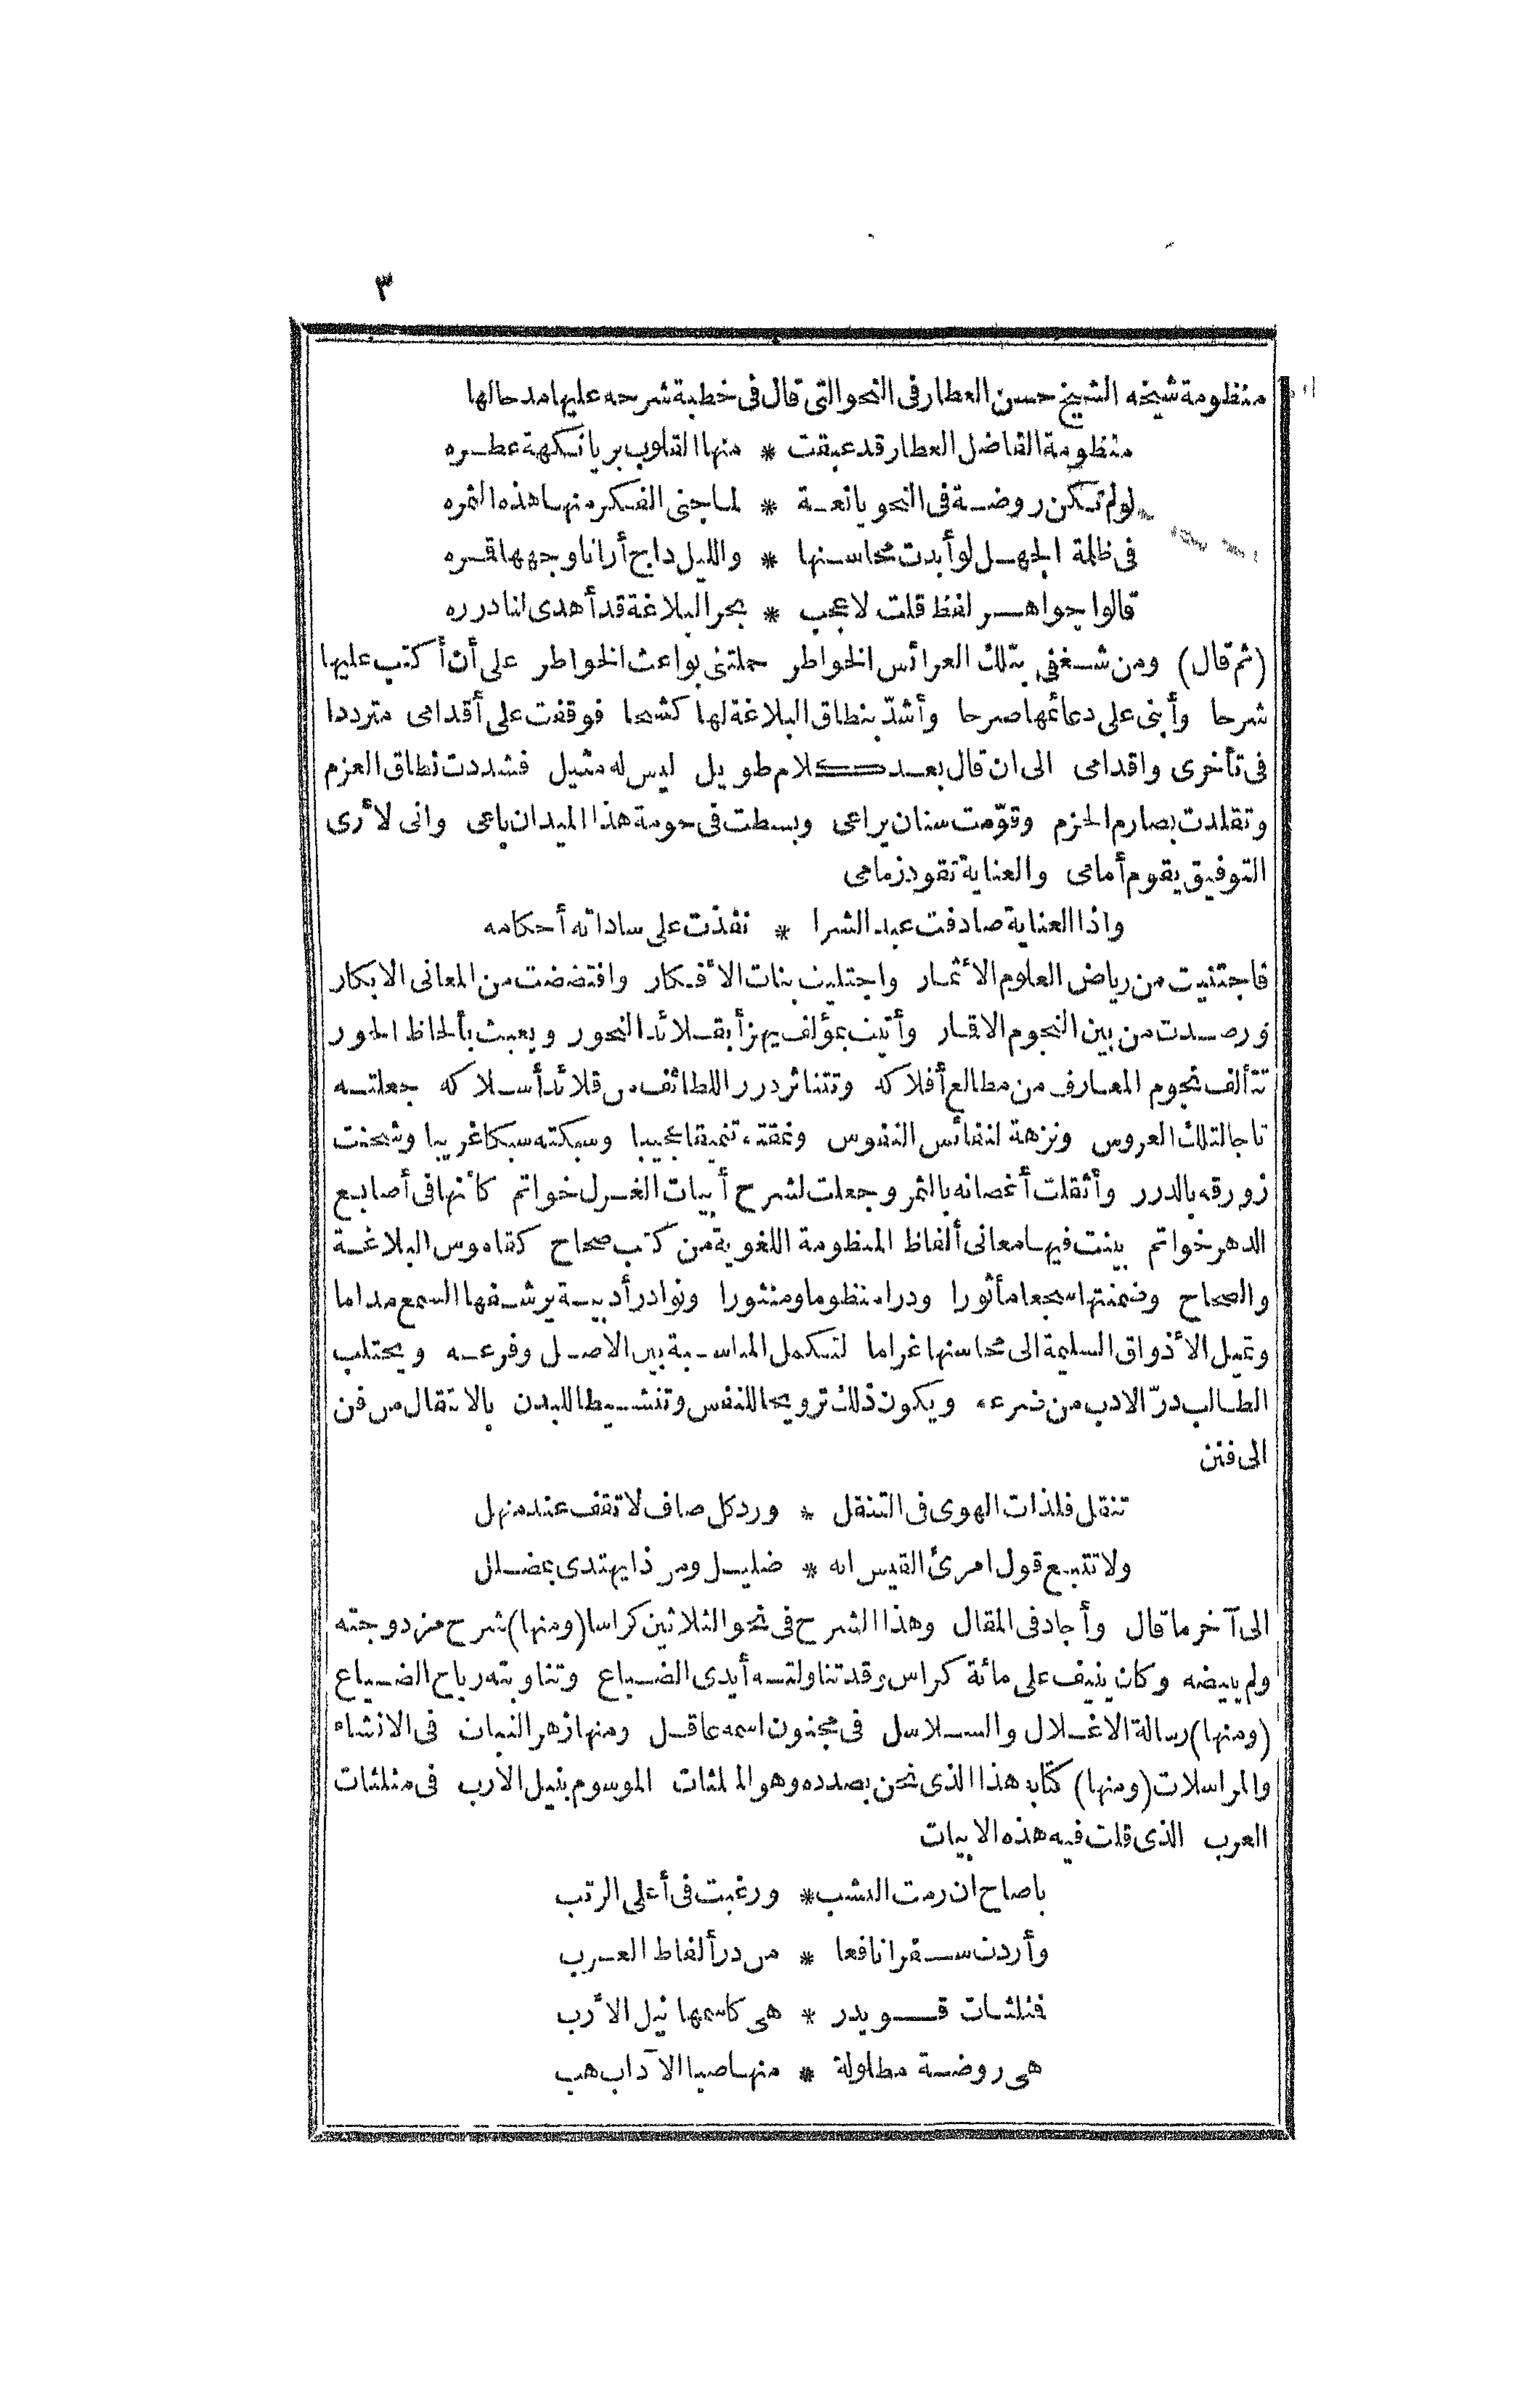 ٣
منظومة شيخه الشيخ حسن العطار فى النحو التى قال فى خطبة شرحه عليها مدحا لها
منظومة الفاضل العطار قد عبقت * منها القلوب بريا نكهة عطره
لو لم تكن روضة فى النحو يانعة * لما جنى الفكر منها هذه الثمره
فى ظلمة الجهل لو أبدت محاسنها * والليل داج أرانا وجهها قمره
قالوا جواهر لفظ قلت لا عجب * بحر البلاغة قد أهدى لنا درره
(ثم قال) ومن شغفى بتلك العرائس الخواطر حملتنى بواعث الخواطر على أن أكتب عليها
شرحا وأبنى على دعائمها صرحا وأشدّ بنطاق البلاغة لها كشحا فوقفت على أقدامى مترددا
فى تأخرى واقدامى الى ان قال بعد كلام طويل ليس له مثيل فشددت نطاق العزم
وتقلدت بصارم الحزم وقوّمت سنان يراعى وبسطت فى حومة هذا الميدان باعى وانى لأرى
التوفيق يقوم أمامى والعناية تقود زمامى
واذا العناية صادفت عبد الشرا * نفذت على ساداته أحكامه
فاجتنيت من رياض العلوم الأثمار واجتليت بنات الأفكار وافتضضت من المعانى الابكار
ورصدت من بين النجوم الاقمار وأتيت بمؤلف يهزأ بقلائد النحور ويعبث بألحاظ الحور
تتألف نجوم المعارف من مطالع أفلاكه وتتناثر درر اللطائف من قلائد أسلاكه جعلته
تاجا لتلك العروس ونزهة لنفائس النفوس ونمقته تنميقا عجيبا وسبكته سبكا غريبا وشحنت
زورقه بالدرر وأثقلت أغصانه بالثمر وجعلت لشرح أبيات الغزل خواتم كأنها فى أصابع
الدهر خواتم بينت فيها معانى ألفاظ المنظومة اللغوية من كتب صحاح كقاموس البلاغة
والصحاح وضمنتها سجعا مأثورا ودرا منظوما ومنثورا ونوادر أدبية يرشفها السمع مداما
وتميل الأذواق السليمة الى محاسنها غراما لتكمل المناسبة بين الأصل وفرعه ويحتلب
الطالب درّ الادب من ضرعه ويكون ذلك ترويحا للنفس وتنشيطا للبدن بالانتقال من فن
الى فنن
تنقل فلذات الهوى فى التنقل * ورد كل صاف لا تقف عند منهل
ولا تتبع قول امرئ القيس انه * ضليل ومن ذا يهتدى بمضلل
الى آخر ما قال وأجاد فى المقال وهذا الشرح فى نحو الثلاثين كراسا (ومنها) شرح مزدوجته
ولم يبيضه وكان ينيف على مائة كراس وقد تناولته أيدى الضياع وتناوبته رياح الضياع
(ومنها) رسالة الاغلال والسلاسل فى مجنون اسمه عاقل ومنها زهر النبات فى الانشاء
والمراسلات (ومنها) كتابه هذا الذى نحن بصدده وهو المثلثات الموسوم بنيل الأرب فى مثلثات
العرب الذى قلت فيه هذه الابيات
يا صاح ان رمت النشب * ورغبت فى أعلى الرتب
وأردت سفرا نافعا * من در ألفاظ العرب
فمثلثات قويدر * هى كاسمها نيل الأرب
هى روضة مطلولة * منها صبا الآداب هب